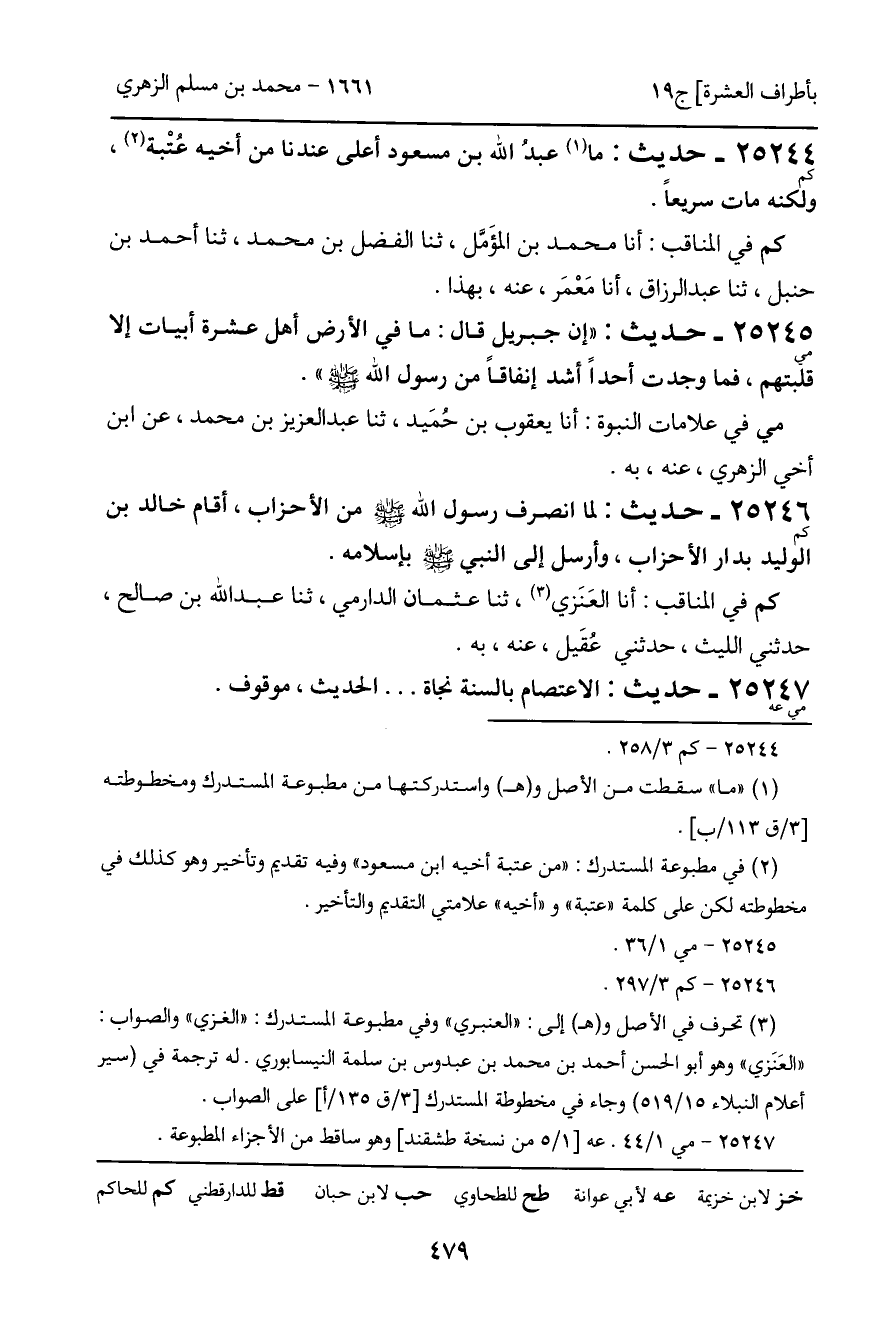 بأطراف العشرة] ج١٩ ١٦٦١ - محمد بن مسلم الزهري
٢٥٢٤٤ - حديث : ما(١) عبدُ الله بن مسعود أعلى عندنا من أخيه عُتْبة(٢) ،
كم
ولكنه مات سريعاً .
كم في المناقب : أنا محمد بن المؤَمَّل ، ثنا الفضل بن محمد ، ثنا أحمد بن
حنبل ، ثنا عبدالرزاق ، أنا مَعْمَر ، عنه ، بهذا .
٢٥٢٤٥ - حديث : «إن جبريل قال : ما في الأرض أهل عشرة أبيات إلا
مي
قلبتهم ، فما وجدت أحداً أشد إنفاقاً من رسول الله ﷺ» .
مي في علامات النبوة : أنا يعقوب بن حُمَيد ، ثنا عبدالعزيز بن محمد ، عن ابن
أخي الزهري ، عنه ، به .
٢٥٢٤٦ - حديث : لما انصرف رسول الله ﷺ من الأحزاب ، أقام خالد بن
كم
الوليد بدار الأحزاب ، وأرسل إلى النبي ﷺ بإسلامه .
كم في المناقب : أنا العَنَزي(٣) ، ثنا عثمان الدارمي ، ثنا عبدالله بن صالح ،
حدثني الليث ، حدثني عُقَيل ، عنه ، به .
٢٥٢٤٧ - حديث : الاعتصام بالسنة نجاة ... الحديث ، موقوف .
مي عه
٢٥٢٤٤ - كم ٢٥٨/٣ .
(١) «ما» سقطت من الأصل و(هـ) واستدركتها من مطبوعة المستدرك ومخطوطته
[٣/ق ١١٣/ب] .
(٢) في مطبوعة المستدرك : «من عتبة أخيه ابن مسعود» وفيه تقديم وتأخير وهو كذلك في
مخطوطته لكن على كلمة «عتبة» و «أخيه» علامتي التقديم والتأخير .
٢٥٢٤٥ - مي ٣٦/١ .
٢٥٢٤٦ - كم ٢٩٧/٣ .
(٣) تحرف في الأصل و(هـ) إلى : «العنبري» وفي مطبوعة المستدرك : «الغزي» والصواب :
«العَنَزي» وهو أبو الحسن أحمد بن محمد بن عبدوس بن سلمة النيسابوري . له ترجمة في (سير
أعلام النبلاء ٥١٩/١٥) وجاء في مخطوطة المستدرك [٣/ق ١٣٥/أ] على الصواب .
٢٥٢٤٧ - مي ٤٤/١ . عه [٥/١ من نسخة طشقند] وهو ساقط من الأجزاء المطبوعة .
خز لابن خزيمة عه لأبي عوانة طح للطحاوي حب لابن حبان قط للدارقطني كم للحاكم
٤٧٩